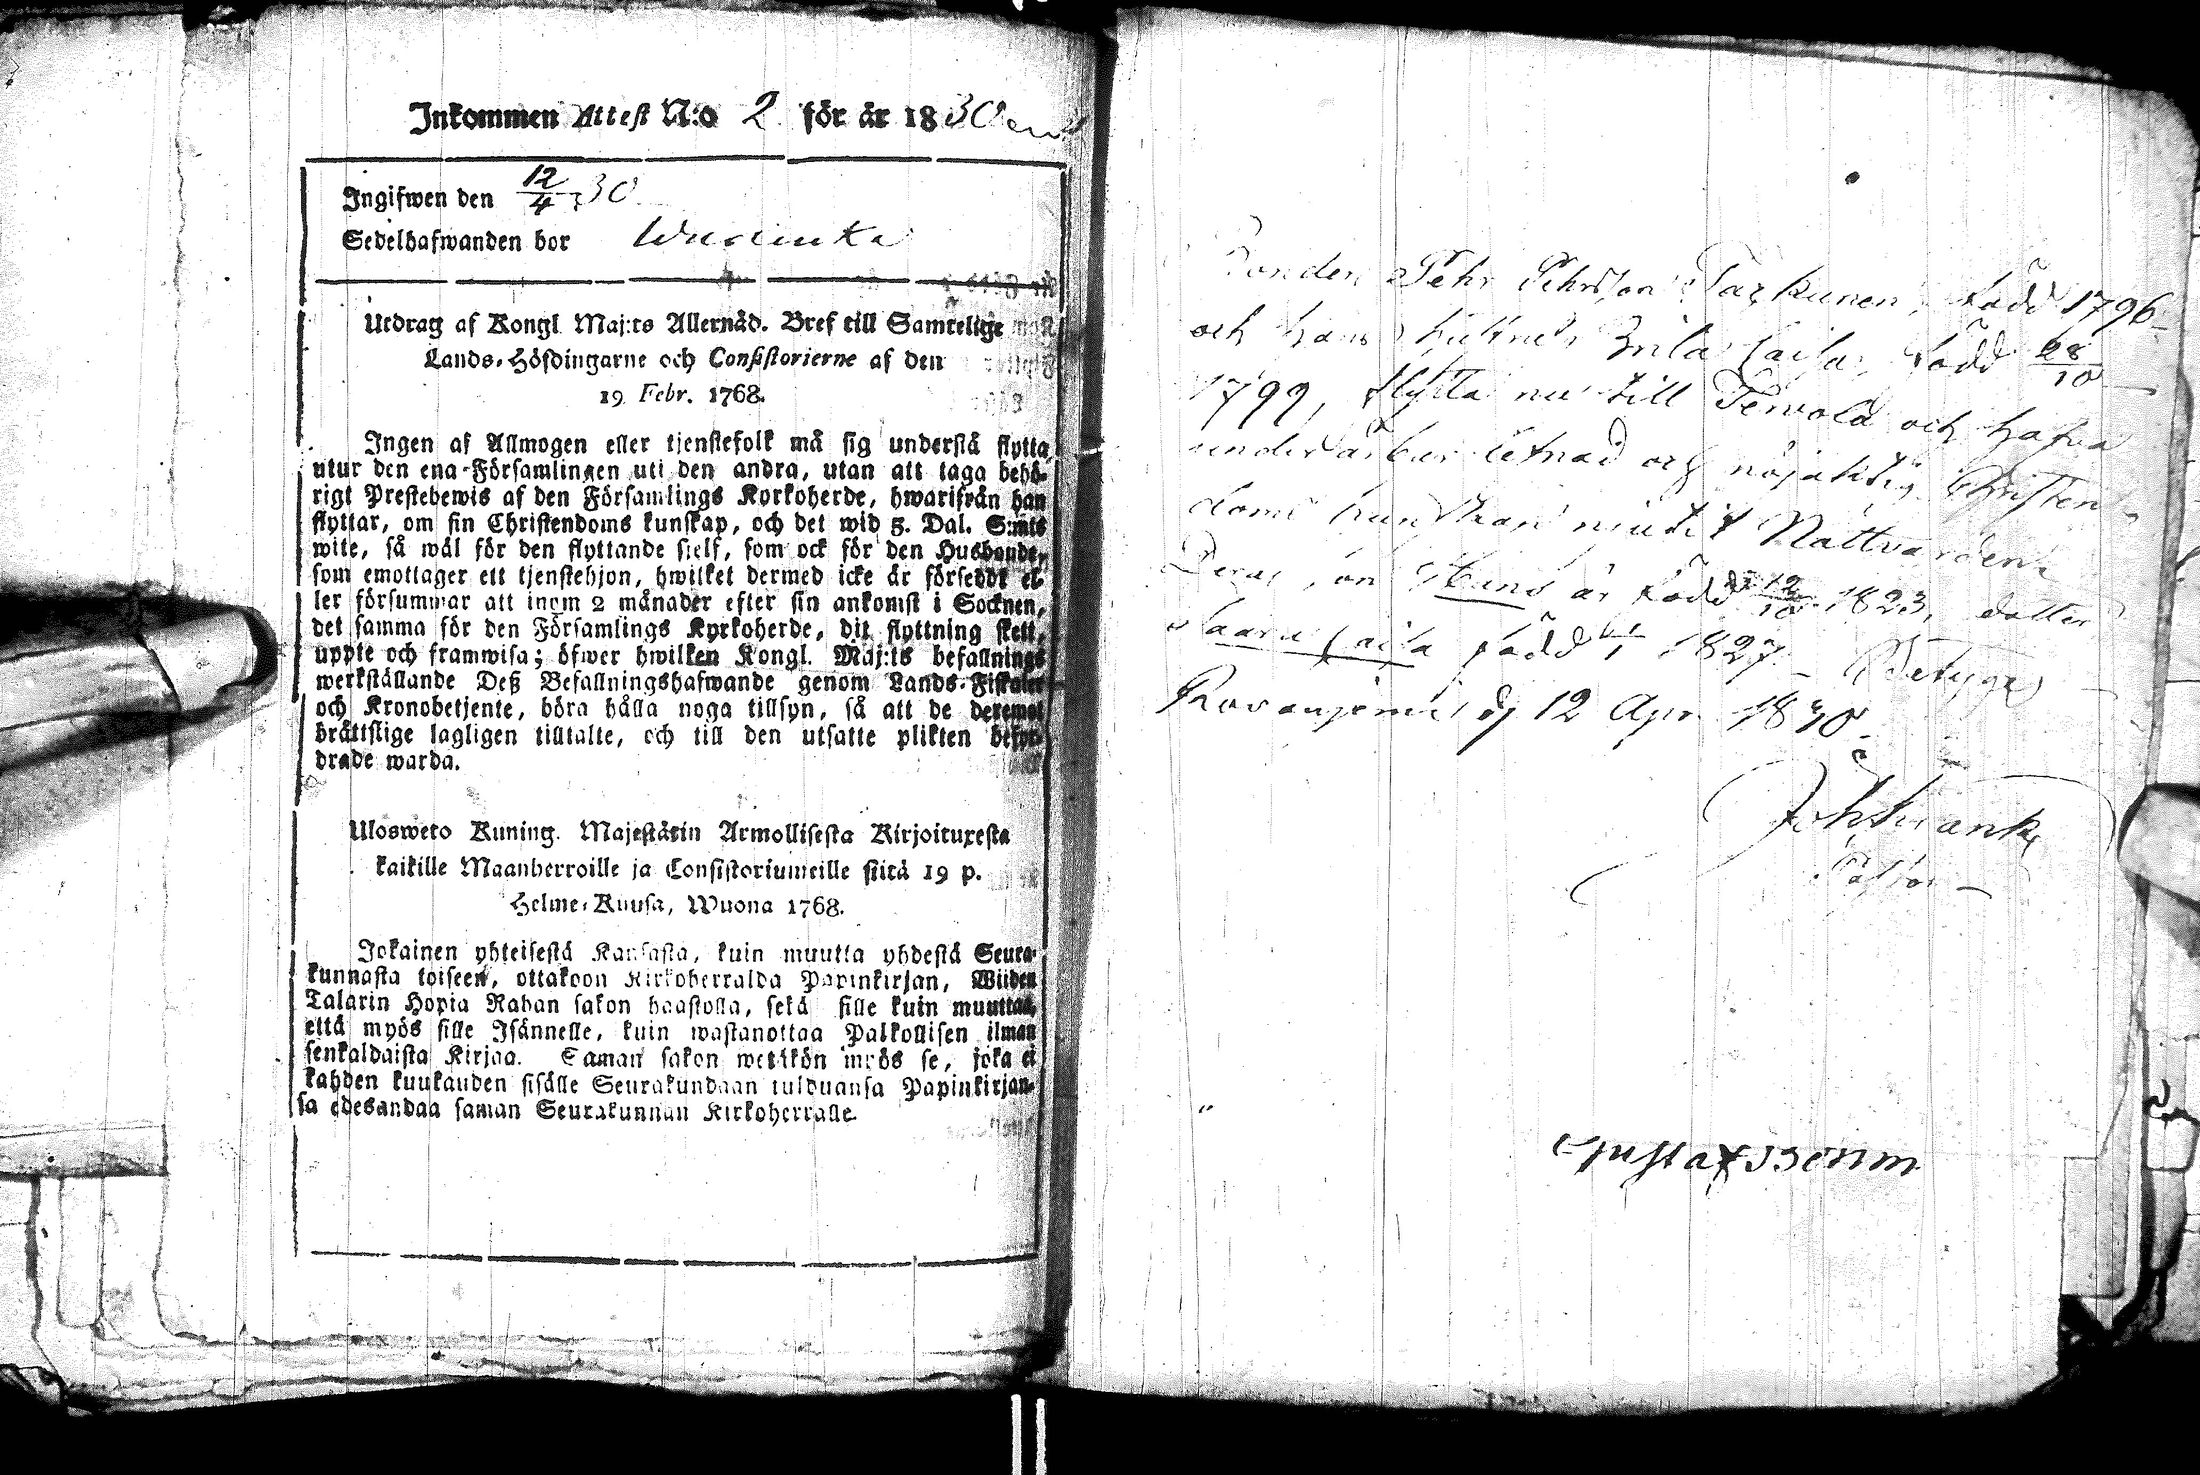 Inkommen Attest N:o 2 för år 1830
Ingifwen den 12/4 30
Sedelhafwanden bor
Utdrag af Kongl. Maj:ts Allernåd. Bref till Samtelige
Lands-Höfdingarne och Consistorierne af den
19 Febr. 1768.
Ingen af Allmogen eller tjenstefolk må sig understå flytta
utur den ena Församlingen uti den andra, utan att taga behö-
rigt Prestebewis af den Församlings Kyrkoherde, hwarifrån han
flyttar, om sin Christendoms kunskap, och det wid 5. Dal. S:mts
wite, så wäl för den flyttande sjelf, som ock för den Husbonde,
som emottager ett tjenstehjon, hwilket dermed icke är försedt el-
ler försummar att inom 2 månader efter sin ankomst i Socknen,
det samma för den Församlings Kyrkoherde, dit flyttning skett,
uppte och framwisa; öfwer hwilken Kongl. Maj:ts befallnings
werkställande Deß Befallningshafwande genom Lands-Fiskaler
och Kronobetjente, böra hålla noga tillsyn, så att de deremot
bråttslige lagligen tilltalte, och till den utsatte plikten befor-
drade warda.
Ulosweto Kuning. Majestätin Armollisesta Kirjoituxesta
kaikille Maanherroille ja Consistoriumeille siitä 19 p.
Helme-Kuusa, Wuona 1768.
Jokainen yhteisestä Kansasta, kuin muutta yhdestä Seura-
kunnasta toiseen, ottakoon Kirkoherralda Papinkirjan, Wiiden
Talarin Hopia Rahan sakon haastolla, sekä sille kuin muuttaa,
että myös sille Isännelle, kuin wastanottaa Palkollisen ilman
senkaldaista Kirjaa. Saman sakon wetäkön myös se, joka ei
kahden kuukauden sisälle Seurakundaan tulduansa Papinkirjan-
sa edesandaa saman Seurakunnan Kirkoherralle.
Bonden Pehr Pehrsson Tarkunen, född 1796
och hans hustru Brita Caisa, född 28/10
1799, flytta nu till Terwola och hafva
underdårbar lefnad och nöjaktig Christen-
doms kunskap niutit Nattvarden.
Deras son Hans är född d. 12/10 1823, dotter
Caisa född 1827. Betygar
Rovaniemi d. 12 Apr. 1830.
Joh Wank
Pastor
Gustaf Bohm